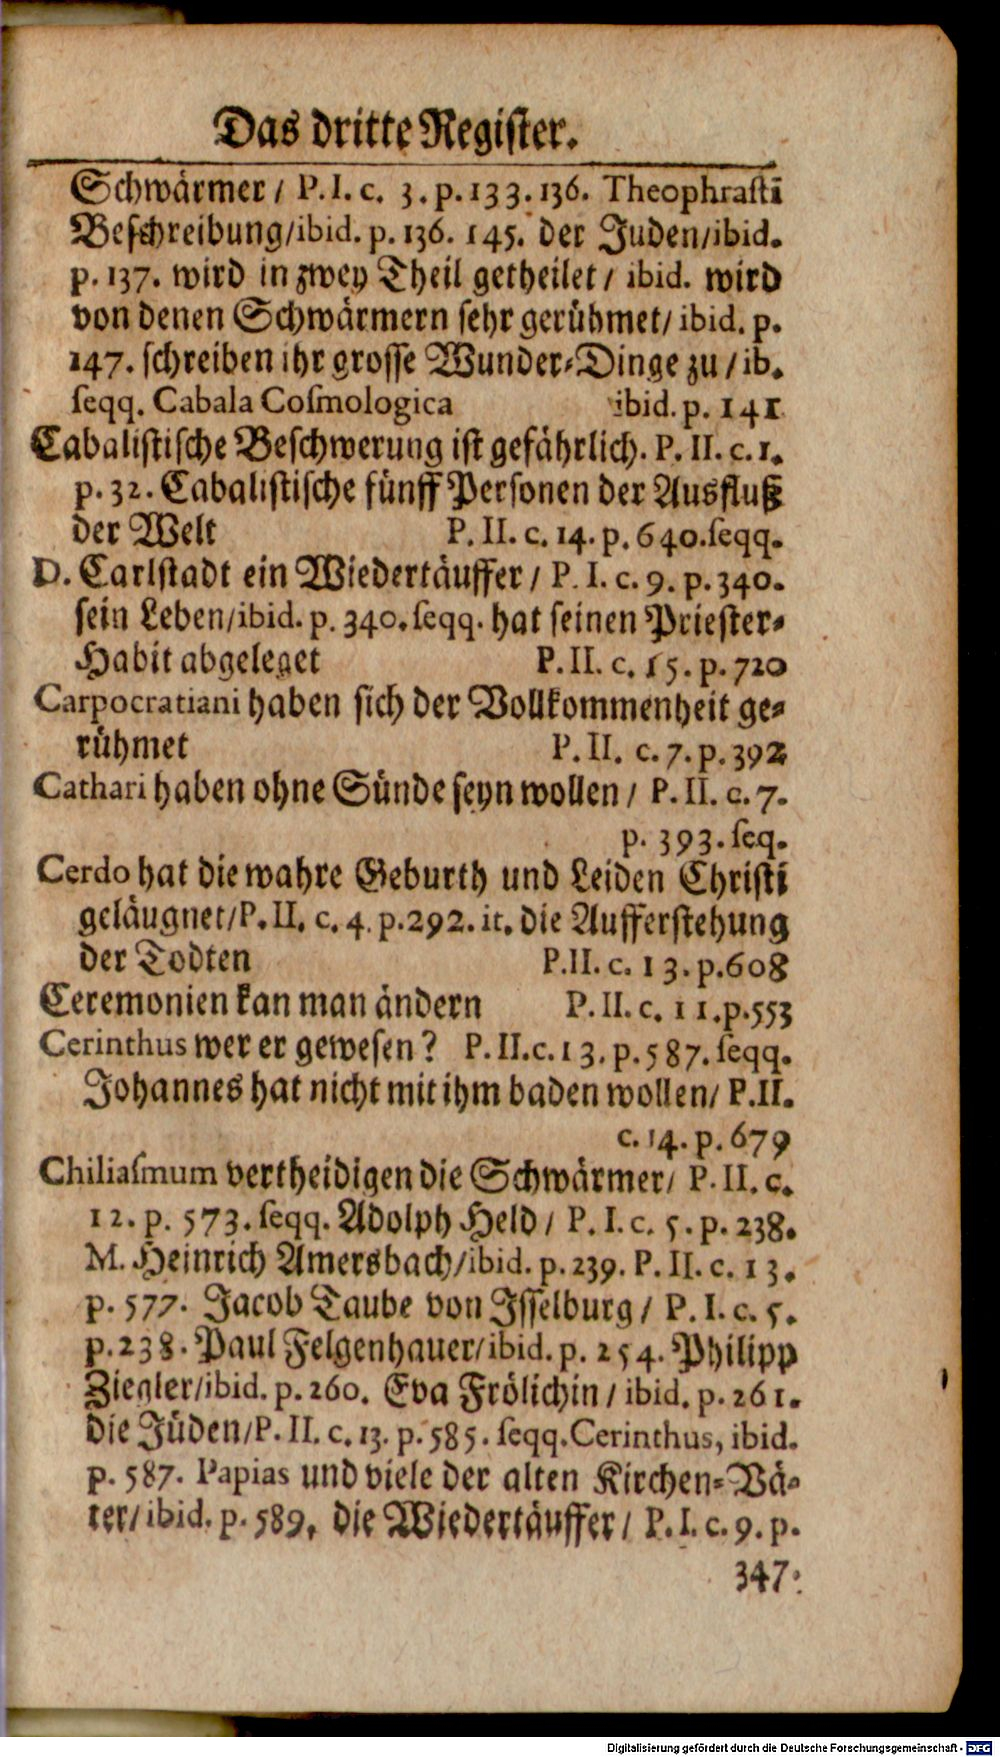 Das dritte Register.
Schwärmer / P. I. c. 3. p. 133. 136. Theophrasti
Beschreibung/ibid. p. 136. 145. der Juden/ibid.
p. 137. wird in zwey Theil getheilet / ibid. wird
von denen Schwärmern sehr gerühmet/ ibid. p.
147. schreiben ihr grosse Wunder-Dinge zu / ib.
seqq. Cabala Cosmologica ibid. p. 141
Cabalistische Beschwerung ist gefährlich. P. II. c. 1.
p. 32. Cabalistische fünff Personen der Ausfluß
der Welt P. II. c. 14. p. 640. seqq.
D. Carlstadt ein Wiedertäuffer / P. I. c. 9. p. 340.
sein Leben/ibid. p. 340. seqq. hat seinen Priester-
Habit abgeleget P. II. c. 15. p. 720
Carpocratiani haben sich der Vollkommenheit ge-
rühmet P. II. c. 7. p. 392
Cathari haben ohne Sünde seyn wollen / P. II. c. 7.
p. 393. seq.
Cerdo hat die wahre Geburth und Leiden Christi
geläugnet/P. II. c. 4. p. 292. it. die Aufferstehung
der Todten P. II. c. 13. p. 608
Ceremonien kan man ändern P. II. c. 11. p. 553
Cerinthus wer er gewesen? P. II. c. 13. p. 587. seqq.
Johannes hat nicht mit ihm baden wollen/ P. II.
c. 14. p. 679
Chiliasmum vertheidigen die Schwärmer/ P. II. c.
12. p. 573. seqq. Adolph Held / P. I. c. 5. p. 238.
M. Heinrich Amersbach/ibid. p. 239. P. II. c. 13.
p. 577. Jacob Taube von Isselburg / P. I. c. 5.
p. 238. Paul Felgenhauer/ibid. p. 254. Philipp
Ziegler/ibid. p. 260. Eva Frölichin / ibid. p. 261.
die Jüden/P. II. c. 13. p. 585. seqq. Cerinthus, ibid.
p. 587. Papias und viele der alten Kirchen-Vä-
ter/ ibid. p. 589. die Wiedertäuffer / P. I. c. 9. p.
347.
Digitalisierung gefördert durch die Deutsche Forschungsgemeinschaft - DFG